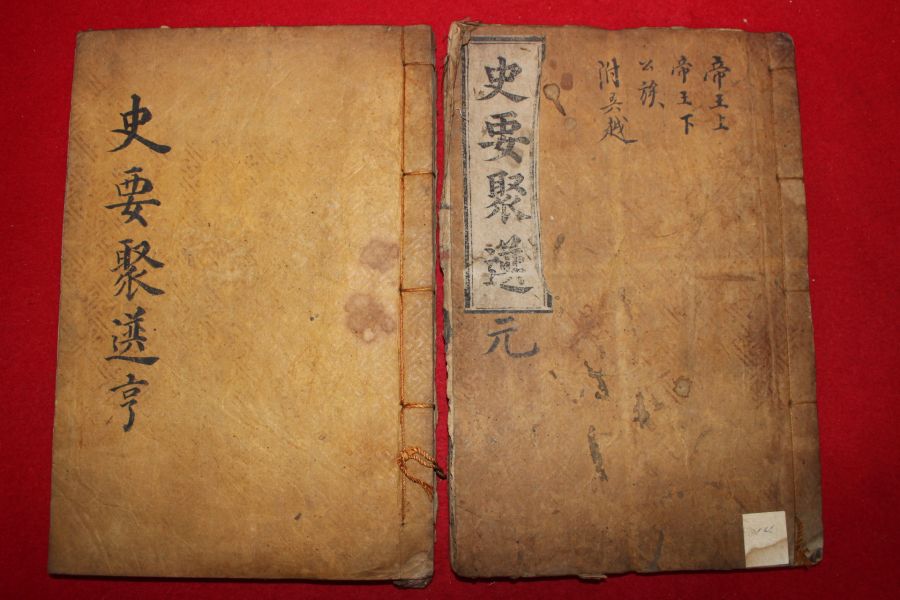 帝王上
帝王下
公族
附吳越
史要聚選
元
史要聚選亨